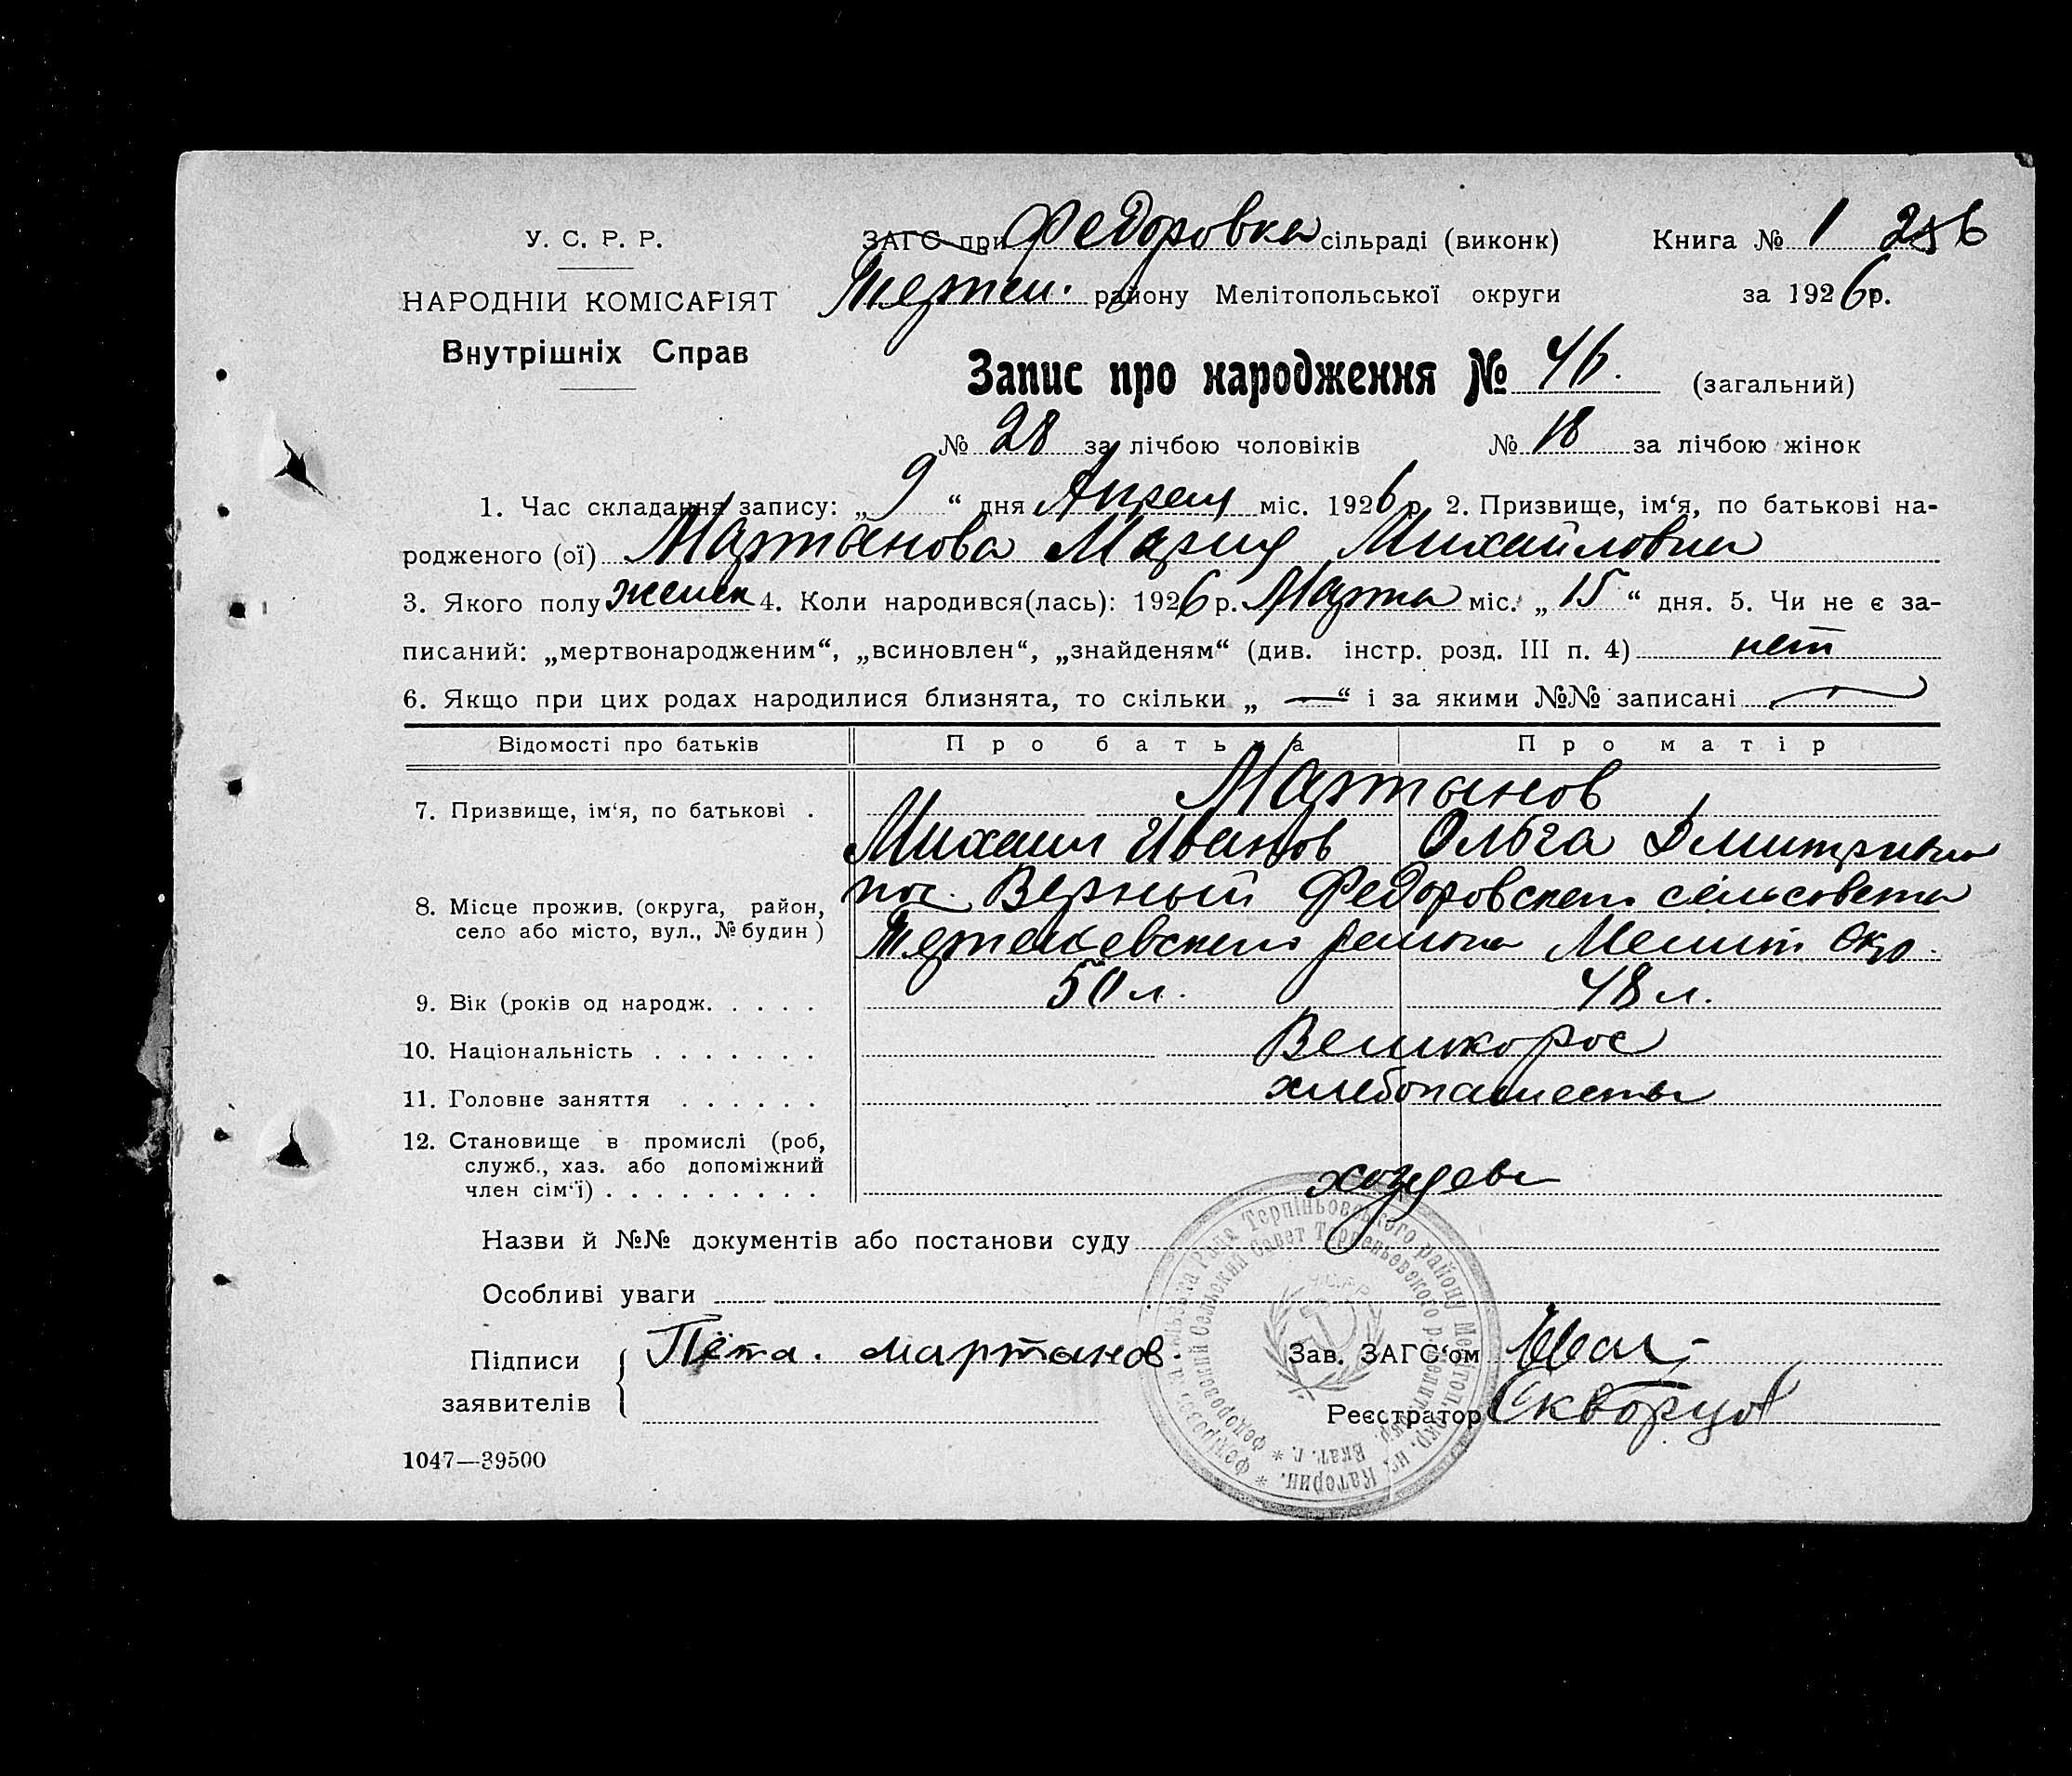 У. С. Р. Р.
НАРОДНІЙ КОМІСАРІЯТ
Внутрішніх Справ
ЗАГС при Федоровка сільраді (виконк)
Терпен. району Мелітопольської округи
Книга № 1 256
за 1926 р.
Запис про народження № 46. (загальний)
№ 28 за лічбою чоловіків № 18 за лічбою жінок
1. Час складання запису: „9“ дня Апреля міс. 1926 р. 2. Призвище, ім‘я, по батькові на-
родженого (ої) Мартынова Мария Михайловна
3. Якого полу женск 4. Коли народився(лась): 1926 р. Марта міс. „15“ дня. 5. Чи не є за-
писаний: „мертвонародженим“, „всиновлен“, „знайденям“ (див. інстр. розд. III п. 4) нет
6. Якщо при цих родах народилися близнята, то скільки „ — “ і за якими №№ записані —
Відомості про батьків Про батька Про матір
7. Призвище, ім‘я, по батькові . Мартынов
Михаил Иванов Ольга Дмитриевна
8. Місце прожив. (округа, район, пос. Верный Федоровского сельсовета
село або місто, вул., № будин) Терпеньевского района Мелит. Окр.
9. Вік (років од народж. . . . . 50 л. 48 л.
10. Національність . . . . . . . Великорос
11. Головне заняття . . . . . . хлебопашество
12. Становище в промислі (роб,
служб., хаз. або допоміжний
член сім‘ї) . . . . . . . . . хозяева
Назви й №№ документів або постанови суду
Особливі уваги
Підписи
заявителів
Мартынов.
Зав. ЗАГС‘ом
Реєстратор Скворцов
1047—39500
Рада Терпіньовського району Мелітоп. окр. на Катерин.
Федоровский Сельский Совет Терпеньевского р. Мелит. окр. Екат. г.
У.С.Р.Р.